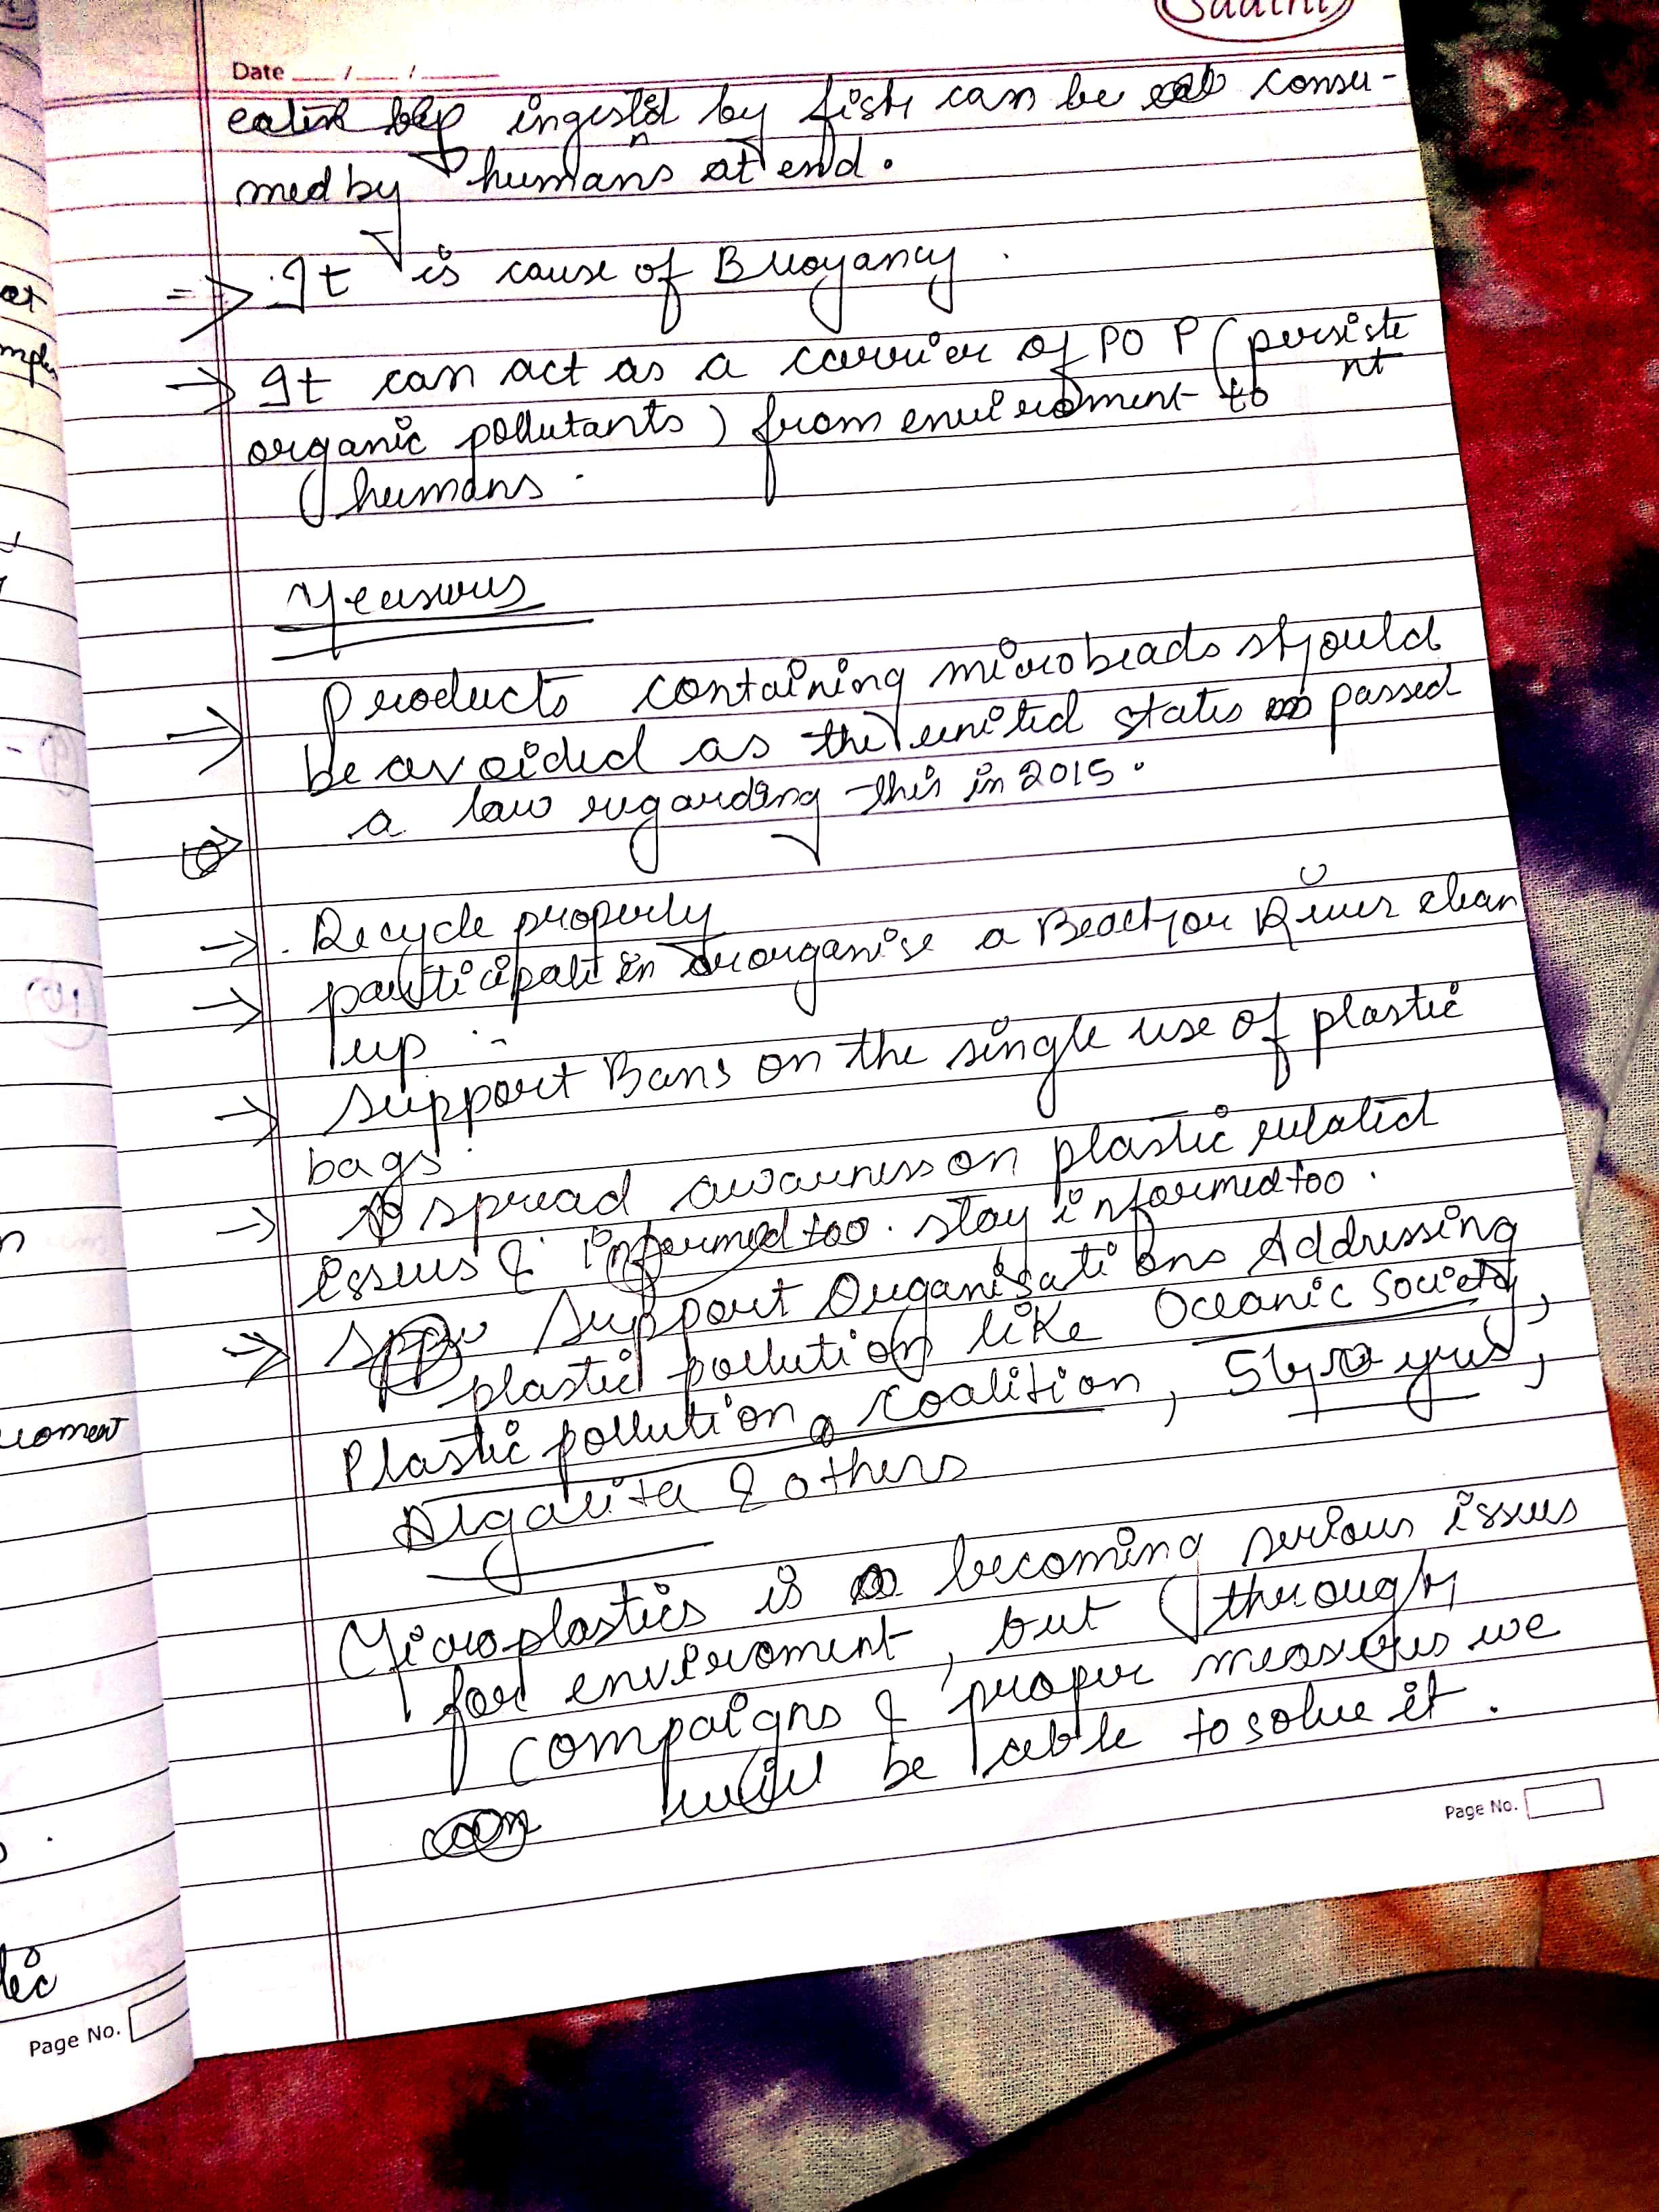 Date __/__/____
eaten by ingested by fish can be consu-
med by humans at end.
=> It is cause of Buoyancy.
-> It can act as a carrier of POP (persiste
nt
organic pollutants) from enviroment to
humans.
Measures
-> Products containing microbeads should
be avoided as the united states passed
a law regarding this in 2015.
-> Recycle properly
-> participate in or organise a Beach or River clean
up :-
-> Support Bans on the single use of plastic
bags.
-> spread awarness on plastic related
issues & informed too. stay informed too.
-> Support Organisations Addressing
plastic pollution like Oceanic Society,
Plastic pollution coalition, 5 Gyres,
Algalita & others
Microplastics is becoming serious issues
for enviroment, but through
compaigns & proper measures we
will be able to solve it.
Page No.
Page No.